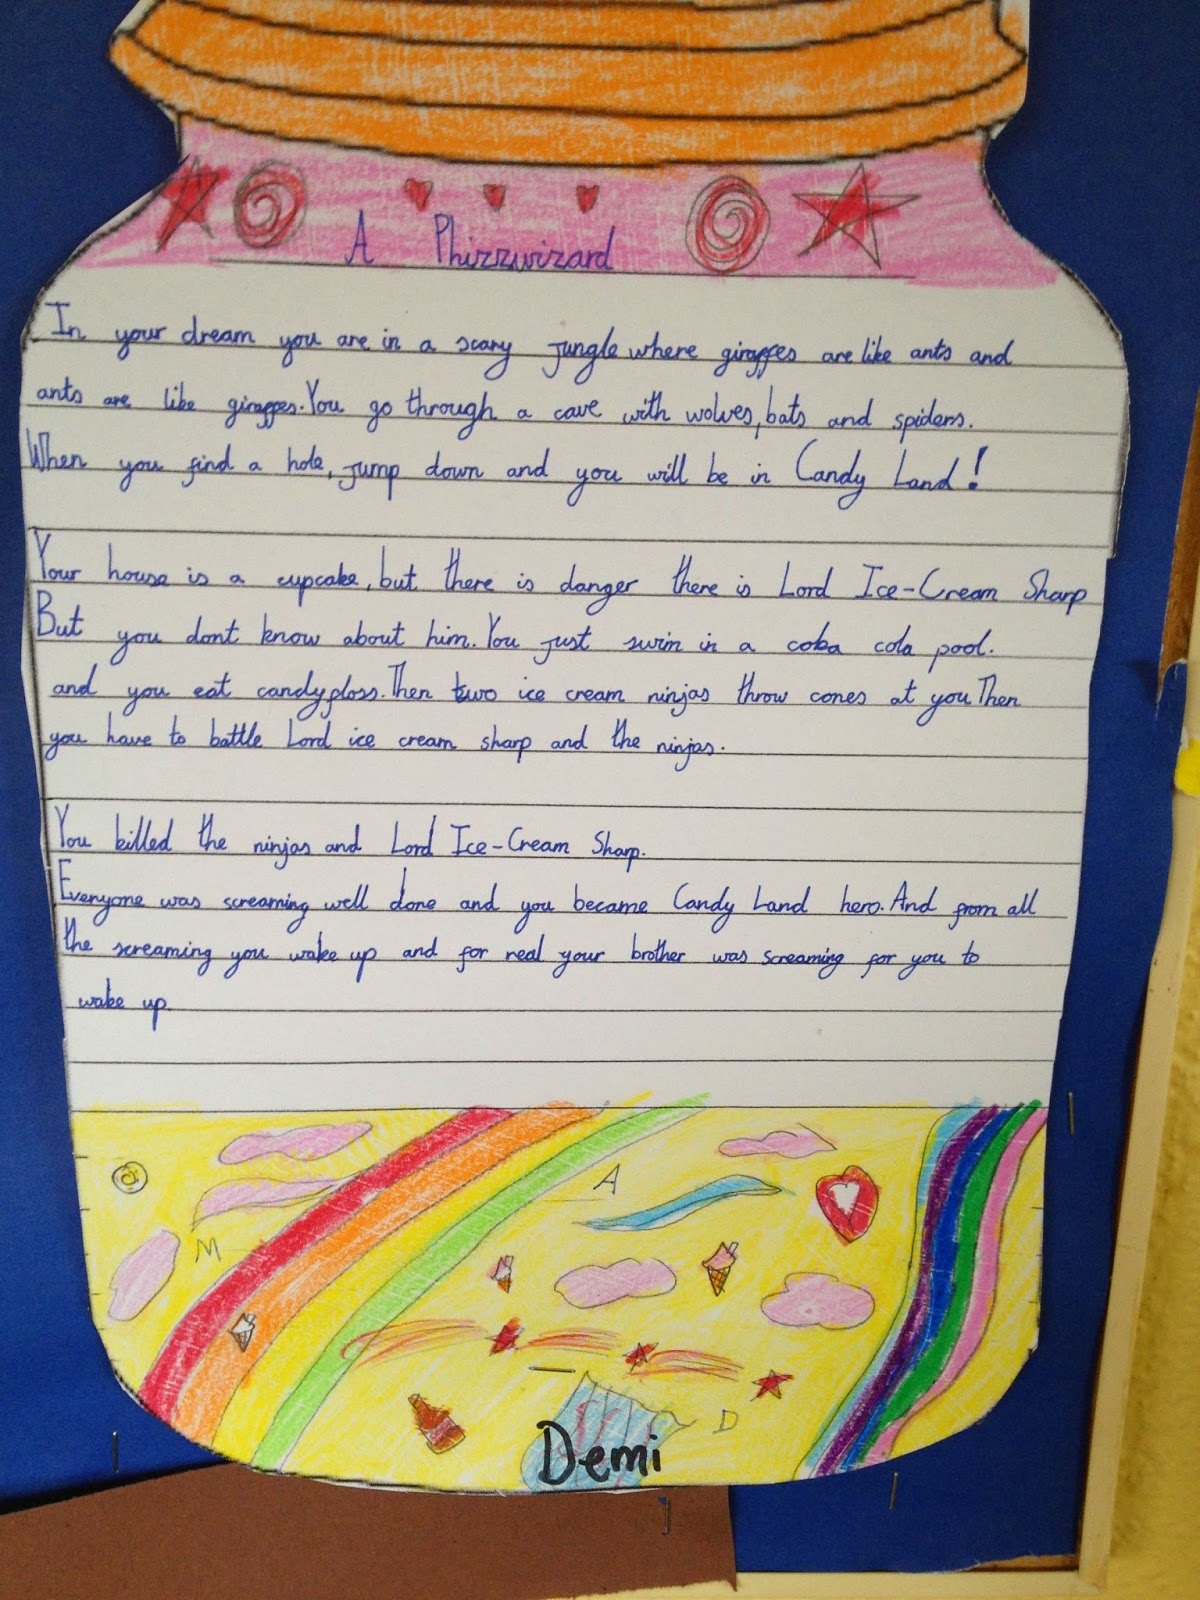 A Phizzwizard
In your dream you are in a scary jungle where giraffes are like ants and
ants are like giraffes. You go through a cave with wolves, bats and spiders.
When you find a hole, jump down and you will be in Candy Land!
Your house is a cupcake, but there is danger there is Lord Ice-Cream Sharp
But you dont know about him. You just swim in a coba cola pool.
and you eat candyfloss. Then two ice cream ninjas throw cones at you Then
you have to battle Lord ice cream sharp and the ninjas.
You killed the ninjas and Lord Ice-Cream Sharp.
Everyone was screaming well done and you became Candy Land hero. And from all
the screaming you wake up and for real your brother was screaming for you to
wake up.
A
M
D
Demi